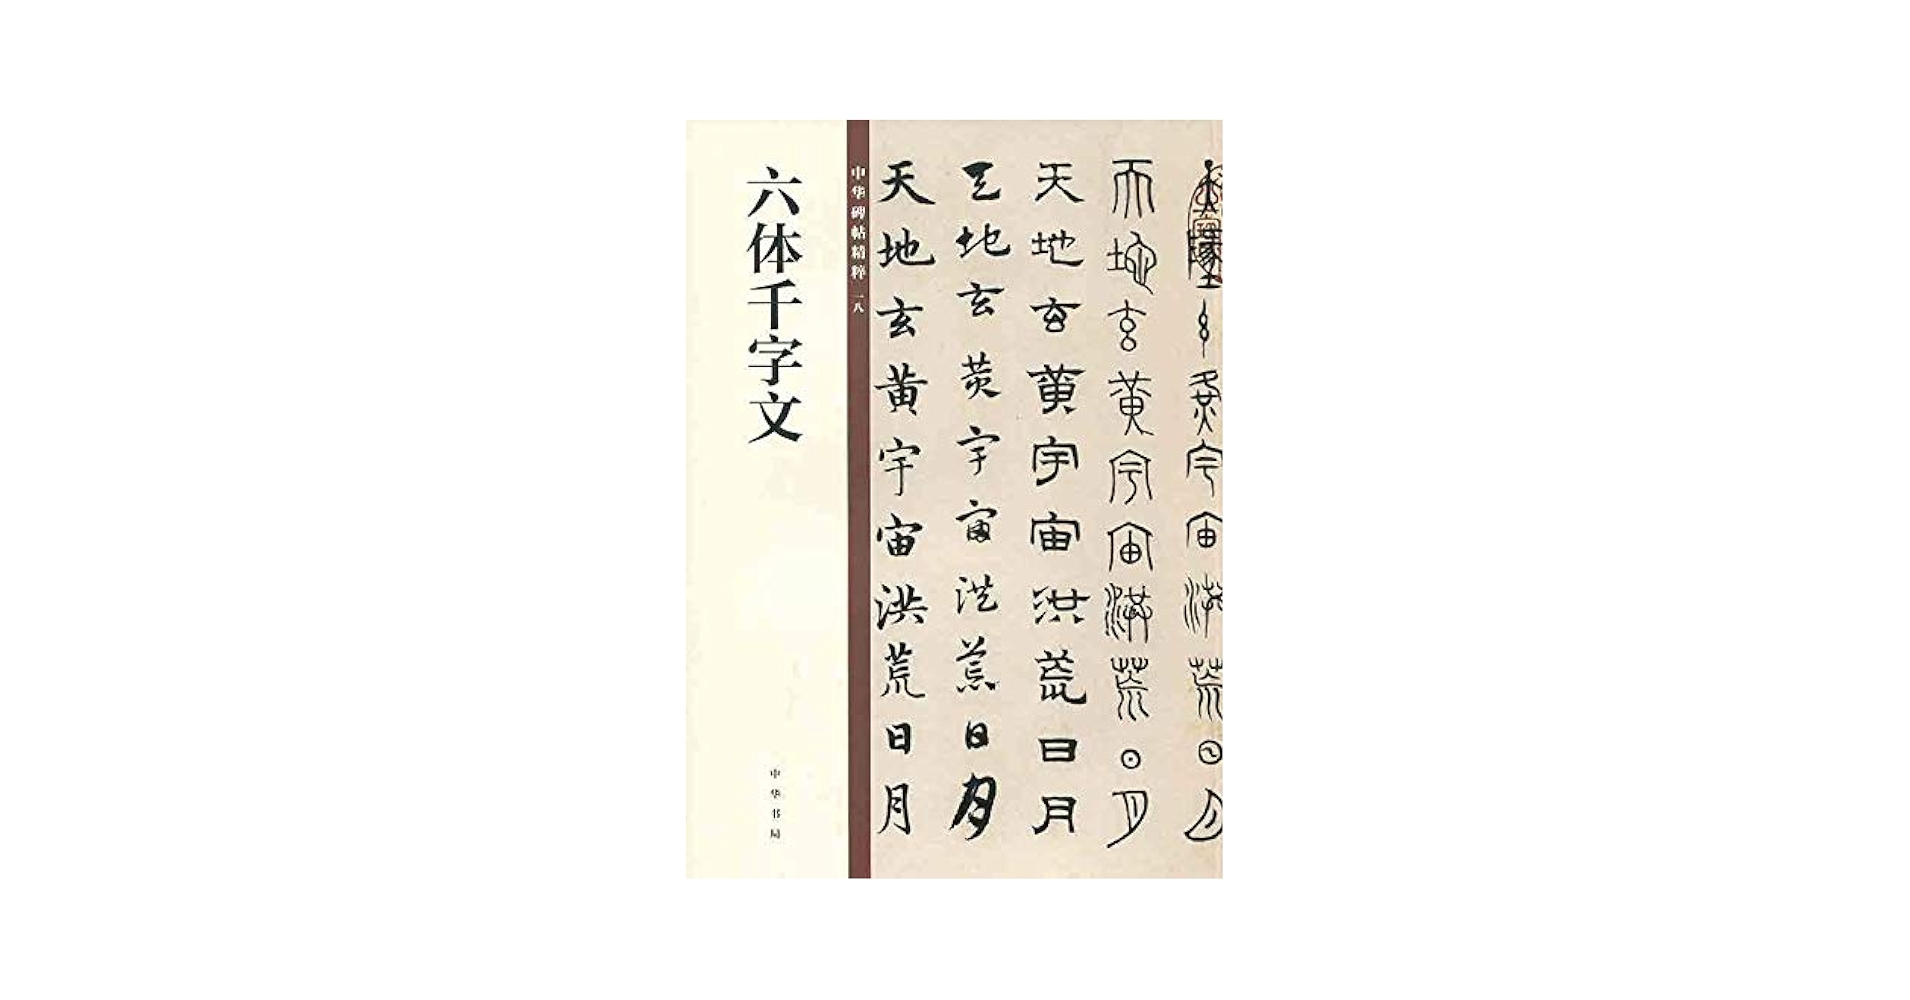 六体千字文
中华书局
中华碑帖精粹 一八
天地玄黄宇宙洪荒日月
天地玄黄宇宙洪荒日月
天地玄黄宇宙洪荒日月
天地玄黄宇宙洪荒日月
天地玄黄宇宙洪荒日月